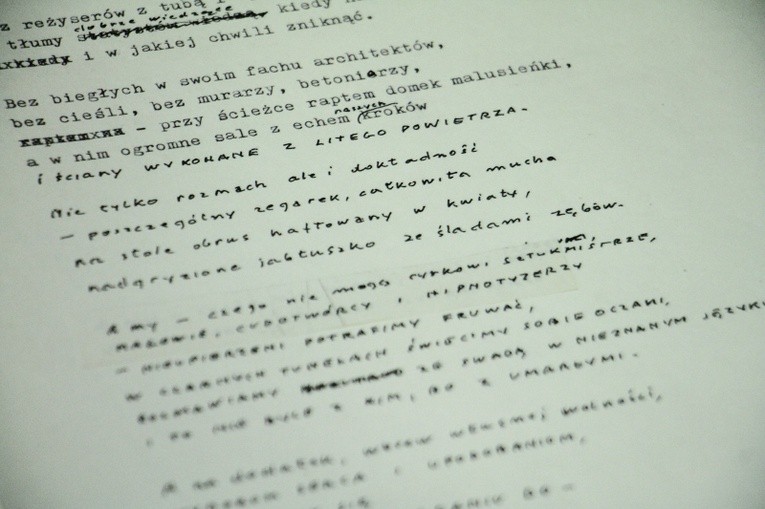 z reżyserów z tubą i
dobrze wiedzące
tłumy kiedy
i w jakiej chwili zniknąć.
Bez biegłych w swoim fachu architektów,
bez cieśli, bez murarzy, betoniarzy,
– przy ścieżce raptem domek malusieńki,
naszych
a w nim ogromne sale z echem kroków
i ściany WYKONANE Z LITEGO POWIETRZA.
Nie tylko rozmach ale i dokładność
– poszczególny zegarek, całkowita mucha
na stole obrus haftowany w kwiaty,
nadgryzione jabłuszko ze śladami zębów.
A my – czego nie mogą cyrkowi SZTUKMISTRZE,
MAGOWIE, CUDOTWÓRCY I HIPNOTYZERZY
– NIEUPIERZENI POTRAFIMY FRUWAĆ,
W CZARNYCH TUNELACH ŚWIECIMY SOBIE OCZAMI,
ROZMAWIAMY ZE SWADĄ W NIEZNANYM JĘZYKU
I TO NIE BYLE Z KIM, BO Z UMARŁYMI.
A na dodatek, wbrew własnej wolności,